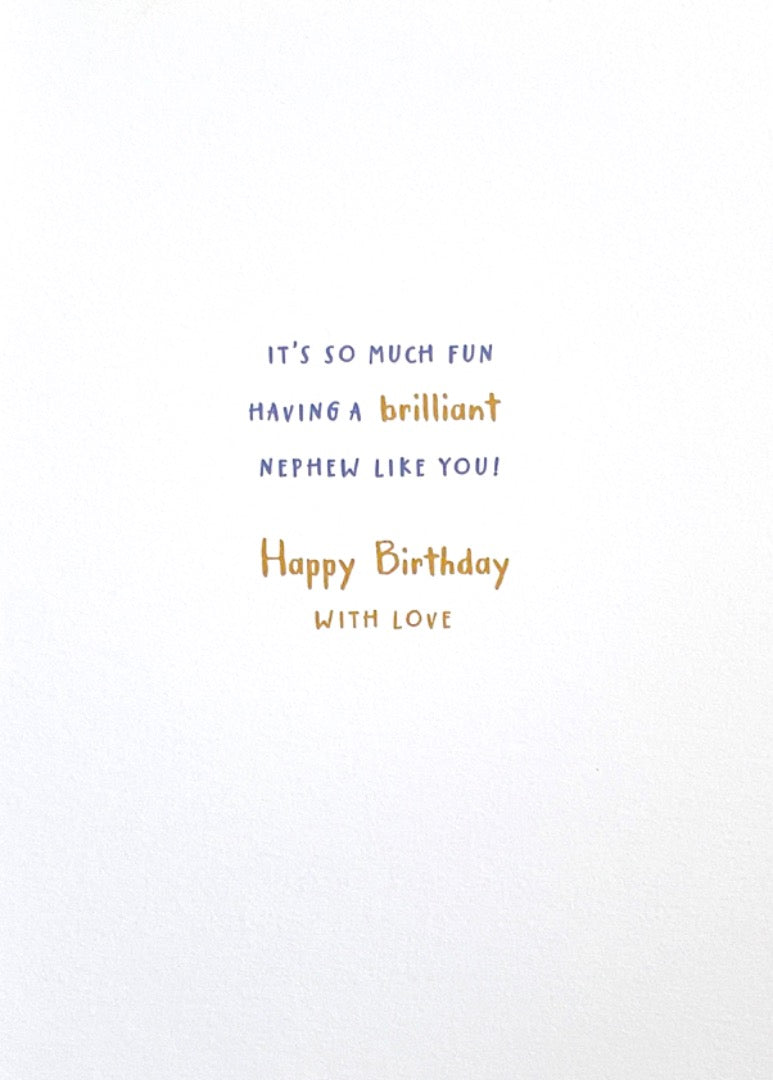 IT'S SO MUCH FUN
HAVING A brilliant
NEPHEW LIKE YOU!
Happy Birthday
WITH LOVE